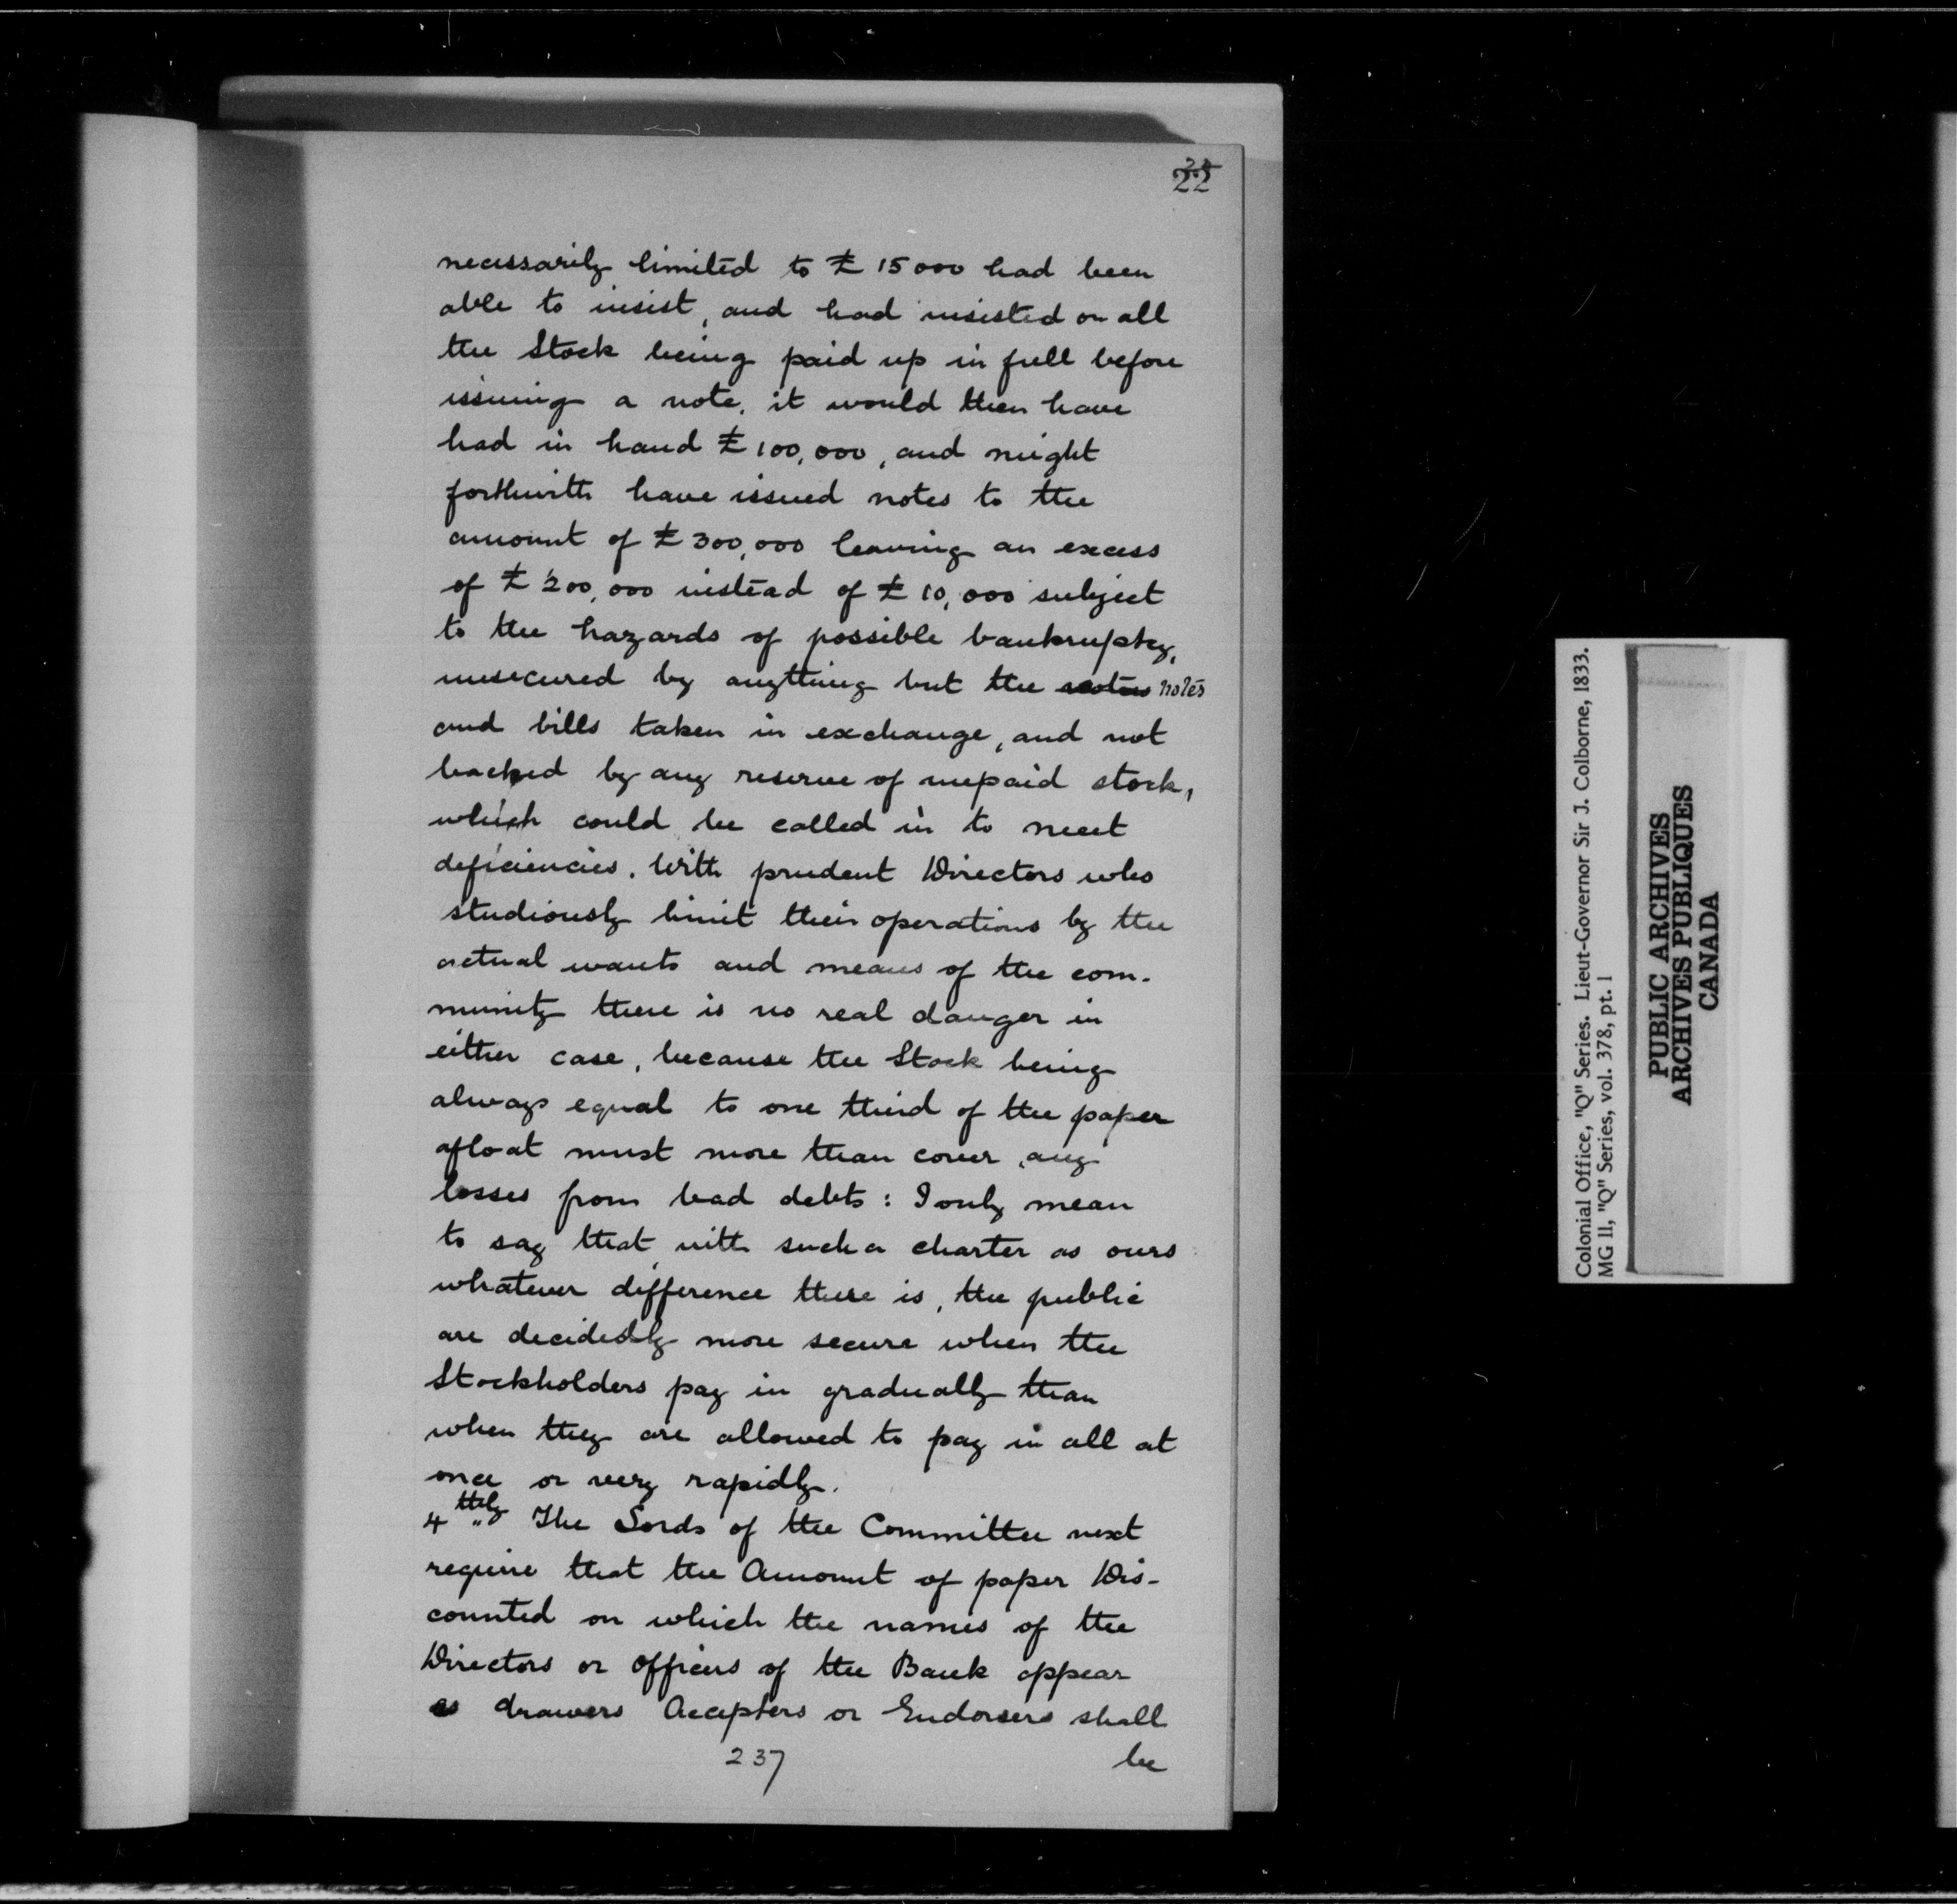 22
necessarily limited to £ 15000 had been
able to insist, and had insisted on all
the Stock being paid up in full before
issuing a note, it would then have
had in hand £ 100,000, and might
forthwith have issued notes to the
amount of £ 300,000 leaving an excess
of £ 200,000 instead of £ 10,000 subject
to the hazards of possible bankruptcy,
unsecured by anything but the notes
and bills taken in exchange, and not
backed by any reserve of unpaid stock,
which could be called in to meet
deficiencies. With prudent Directors who
studiously limit their operations by the
actual wants and means of the com-
munity there is no real danger in
either case, because the Stock being
always equal to one third of the paper
afloat must more than cover any
losses from bad debts: I only mean
to say that with such a charter as ours
whatever difference there is, the public
are decidedly more secure when the
Stockholders pay in gradually than
when they are allowed to pay in all at
once or very rapidly.
4thly The Lords of the Committee next
require that the Amount of paper Dis-
counted on which the names of the
Directors or officers of the Bank appear
as drawers Accepters or Endorsers shall
237 be
Colonial Office, "Q" Series. Lieut-Governor Sir J. Colborne, 1833.
MG 11, "Q" Series, vol. 378, pt. 1
PUBLIC ARCHIVES
ARCHIVES PUBLIQUES
CANADA